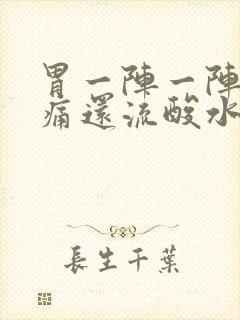 胃一陣一陣
痛還流酸水
長生千葉